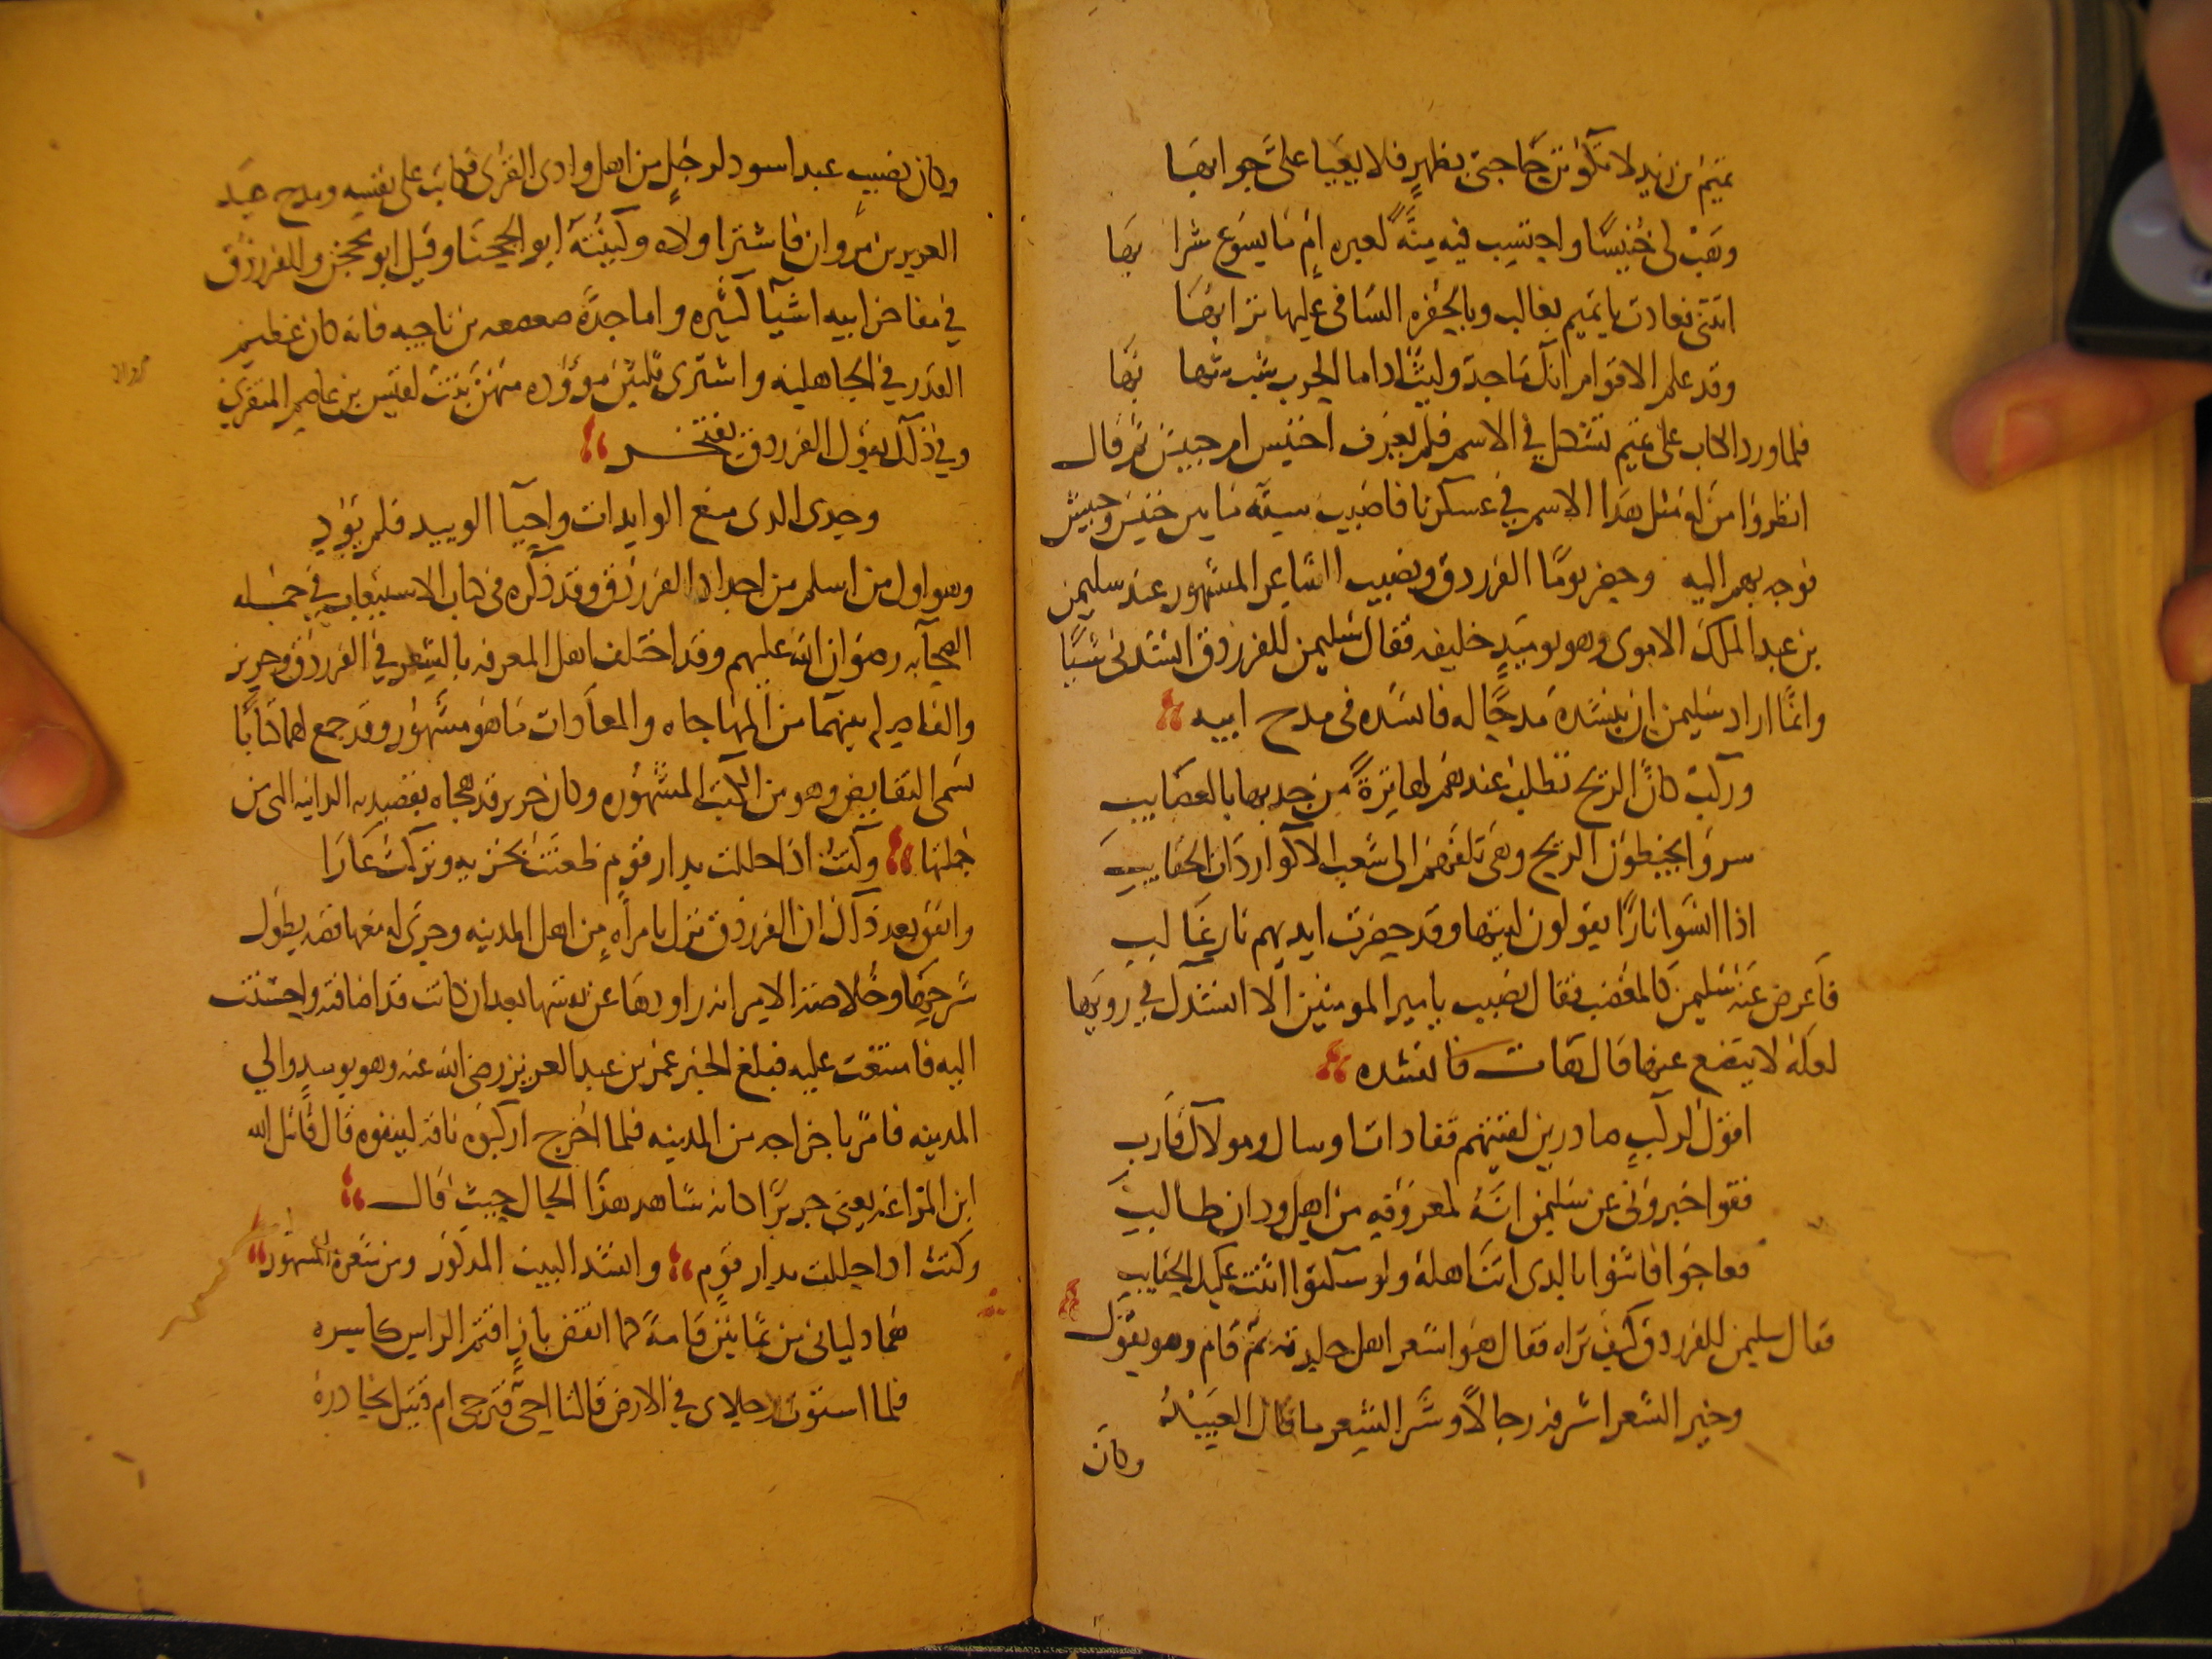 تميم بن زيد لا تكونن حاجتى بظهر فلا يعيا على جوابها
وهب لى خنيسا واحتسب فيه منة لعبره ام ما يسوغ شرا بها
اتتنى فعادت يا تميم بغالب وبالحفره السافى عليها ترابها
وقد علم الاقوام انك ماجد وليث اذا ما الحرب شب شهابها
فلما ورد الكاب على تميم تشكل فى الاسم فلم يعرف اخنيس ام حبيش ثم قال
انظروا من له مثل هذا الاسم فى عسكرنا فاصيب سته ما بين خنيس وحبيش
فوجه بهم اليه وحضر يوما الفرزدق ونصيب الشاعر المشهور عند سليمن
بن عبد الملك الاموى وهو يوميد خليفه فقال سليمن للفرزدق انشدنى شيئا
وانما اراد سليمن ان ينشده مدحا له فانشده فى مدح ابيه
وركب كان الريح تطلب عندهم لها ترة من جذبها بالعصايب
سروا يخبطون الريح وهى تلفهم الى شعب الاكوار ذات الحقايب
اذا انسوا نارا يقولون ليتها وقد حضرت ايديهم نار غالب
فاعرض عنه سليمن كالمغضب فقال نصيب يا امير المومنين الا انشدك فى رويها
لعله لا يتضع عنها قال هات فانشده
اقول لركب صادرين لقيتهم قفا ذات اوسال ومولاك قارب
فقوا خبرونى عن سليمن اننى لمعروفه من اهل ودان طالب
فعاجوا فاثنوا بالذى انت اهله ولو سكتوا اثنت عليك الحقايب
فقال سليمن للفرزدق كيف تراه فقال هو اشعر اهل جلدته ثم قام وهو يقول
وخير الشعر اشرفه رجالا وشر الشعر ما قال العبيد
وكان
وكان نصيب عبدا اسود لرجل من اهل وادى القرى فكاتب على نفسه ومدح عبد
العزيز بن مروان فاشترا ولاه وكنيته ابو الحجنا وقيل ابو محجن والفرزدق
فى مفاخر ابيه اشيا كثيره واما جده صعصعه بن ناجيه فانه كان عظيم
القدر فى الجاهليه واشترى ثلثين موؤده منهن بنت لقيس بن عاصم المنقرى
وفى ذلك يقول الفرزدق يفتخر
وجدى الذى منع الوايدات واحيا الوييد فلم يؤد
وهو اول من اسلم من اجداد الفرزدق وقد ذكره فى كتاب الاستيعاب فى جمله
الصحابه رضوان الله عليهم وقد اختلف اهل المعرفه بالشعر فى الفرزدق وجرير
والفاصل بينهما من المهاجاه والمعادات ما هو مشهور وقد جمع لهما كتابا
تسمى النقايض وهو من الكتب المشهوره وكان جرير قد هجاه بقصيدته الرايه التى من
جملتها وكنت اذا حللت بدار قوم ظعنت بخزيه وتركت عارا
واتفق بعد ذلك ان الفرزدق نزل بامراه من اهل المدينه وجرى له معها قصه يطول
شرحها وخلاصه الامر انه راودها عن نفسها بعد ان كانت قد اضافته واحسنت
اليه فامتنعت عليه فبلغ الخبر عمر بن عبد العزيز رضى الله عنه وهو يوميد والى
المدينه فامر باخراجه من المدينه فلما اخرج اركبوه ناقه لينفوه قال قاتل الله
ابن المراغه يعنى جريرا كانه شاهد هذا الحال حيث قال
وكنت اذا حللت بدار قوم وانشد البيت المذكور ومن شعره المشهور
هما دليانى من ثمانين قامة كما انقض باز اقتم الراس كاسره
فلما استوت رجلاى فى الارض قالتا احى فيرجى ام قتيل نحاذره